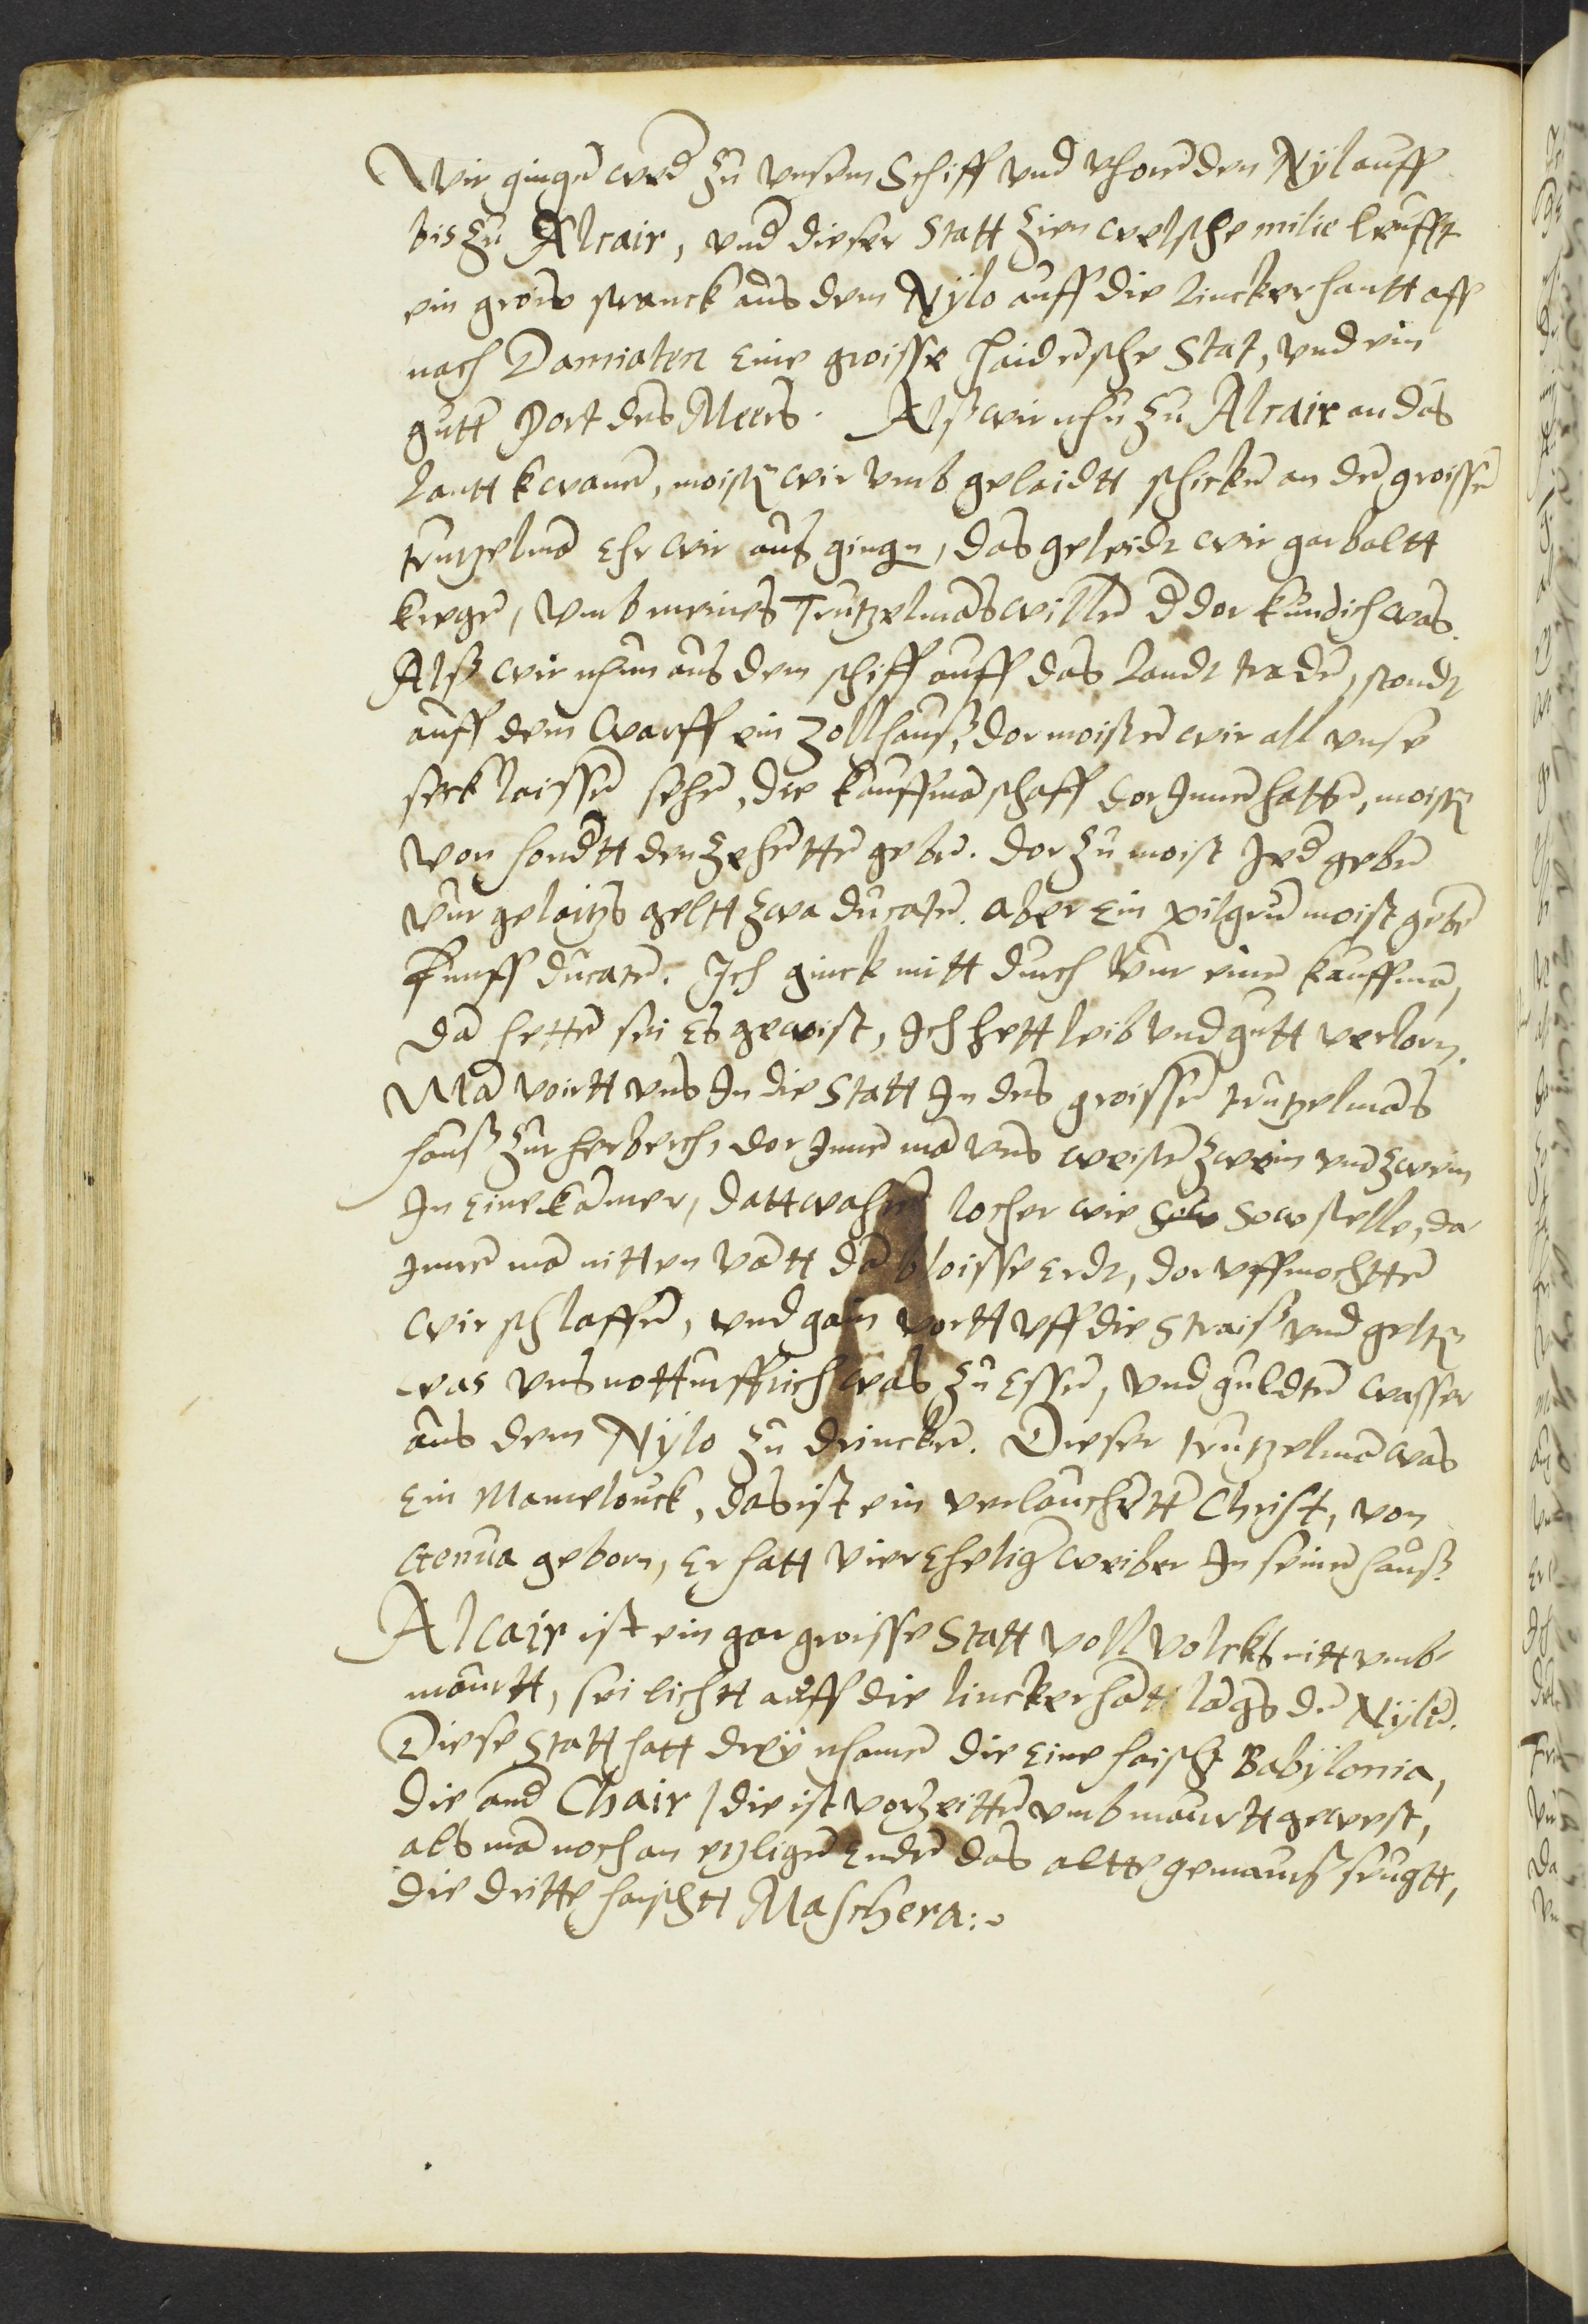 Wir gingen wed zu vnsem Schiff vnd vhoren den Nÿl auff
bis zu Alcair, vnd dieser Statt zien welsche milie leufft
ein grois stranck aus dem Nÿlo auff die linckerhantt aff
nach Damiaten Eine groisse haidensche Stat, vnd ein
gutt Port des Meers. Alß wir nhu zu Alcair an das
lantt kwamen, moisten wir vmb gelaidtt schicken an den groissen
trutzelman Ehr wir aus gingen, das geleidt wir gar baltt
kregen, vmb meines Trutzelmans willen d dor kundich was.
Alß wir nhun aus dem schiff auff das landt traden, stondt
auff dem warff ein Zollhauß, dor moisten wir all vnse
seck laissen sehen, die kauffmanschaff dor Innen hatten, moisten
von hondtt den zehentten geben. dor zu moist Jed geben
vur gelaitz geltt zwa ducaten. aber Ein pilgrum moist geben
funff ducaten. Ich ginck mitt durch vur einen kauffman,
dan hetten sei Es gewist, Ich hett leib vnd gutt verlorn.
Man voirtt vns In die Statt In des groissen trutzelmans
hauß zur herberch, dor Innen man vns weisten zwein vnd zwein
In Eine kamer, datt wahren locher wie Sow stelle, da
Innen man nitt en vantt dan bloisse Erdt, dor vff mochtten
wir schlaffen, vnd gain vortt vff die Straiß vnd gelten
was vns notturfftich was zu Essen, vnd guldten wasser
aus dem Nÿlo zu drincken. Dieser trutzelman was
Ein Mamelouck, das ist ein verlauchentt Christ, von
Genua geborn, Er hatt vier Ehelige weiber In seinen hauß.
Alcair ist ein gar groisse Statt voll volcks nitt vmb
mourtt, sei lichtt auff die linckerhantt langs den Nÿlum.
Diese Statt hatt dreÿ nhamen die Eine haischt Babÿlonia,
die and Chair / die ist vorzeitten vmbmourtt gewest,
als man noch an etzligen Enden das altte gemaurß seugtt,
die dritte haischtt Maschera: